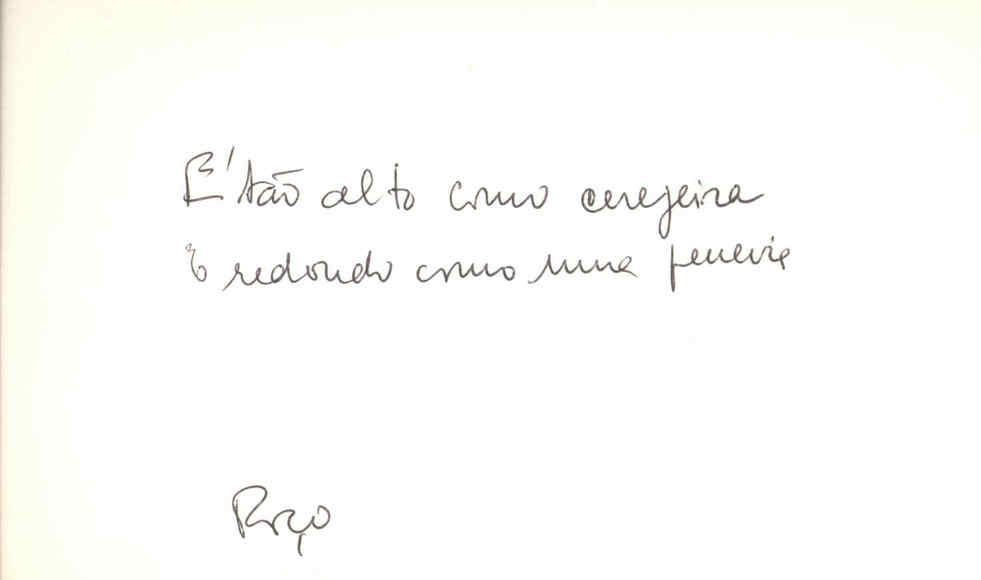 É tão alto como cerejeira
E redondo como uma peneira
Poço